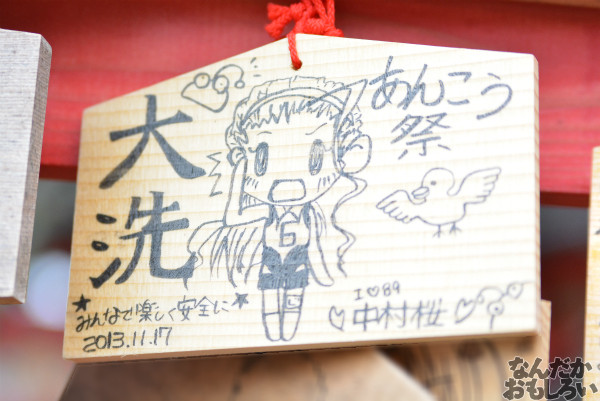 大洗
あんこう
祭
6
★みんなで楽しく安全に★
2013.11.17
I♡89
♡中村桜♡
なんだか
おもしろい